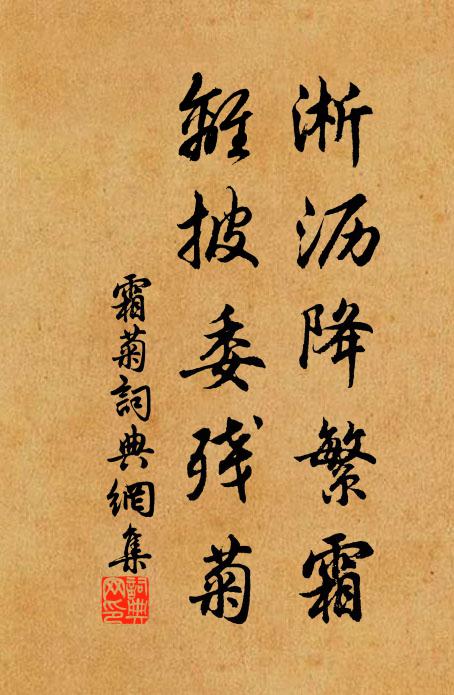 淅沥降繁霜
離披委残菊
霜菊詞典網集
詞典
网印